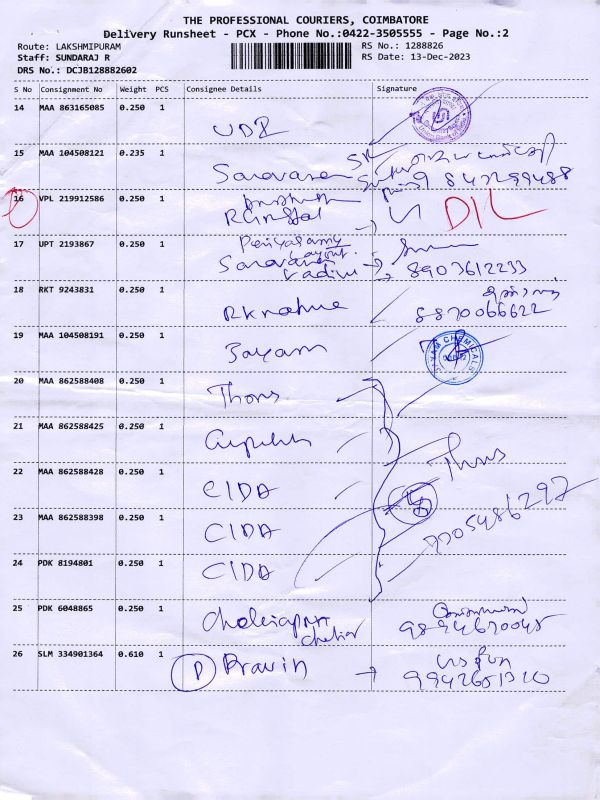 THE PROFESSIONAL COURIERS, COIMBATORE
Delivery Runsheet - PCX - Phone No.:0422-3505555 - Page No.:2
Route: LAKSHMIPURAM
Staff: SUNDARAJ R
DRS No.: DCJB128882602
RS No.: 1288826
RS Date: 13-Dec-2023
S No Consignment No Weight PCS Consignee Details Signature
14 MAA 863165085 0.250 1
15 MAA 104508121 0.235 1 Saravanan
16 VPL 219912586 0.250 1 DIL
17 UPT 2193867 0.250 1 Periyasamy Layout
Saravanan 8903612233
18 RKT 9243831 0.250 1 8870066622
19 MAA 104508191 0.250 1 Jayam CHEMICALS
20 MAA 862588408 0.250 1 Thons
21 MAA 862588425 0.250 1 Thons
22 MAA 862588428 0.250 1 CIDA
23 MAA 862588398 0.250 1 CIDA 7705486297
24 PDK 8194801 0.250 1 CIDA
25 PDK 6048865 0.250 1 9894670045
26 SLM 334901364 0.610 1 P Pravin 9942651320